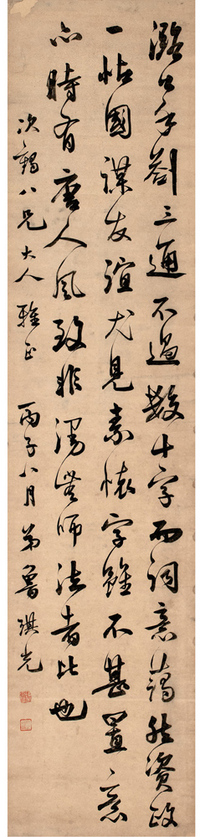 潞公手劄三通不過數十字而詞意藹然資政
一帖國謀友誼尤見素懷字雖不甚置意
亦時有唐人風致非漫無師法者比也
次鶴八兄大人雅正 丙子八月弟魯琪光